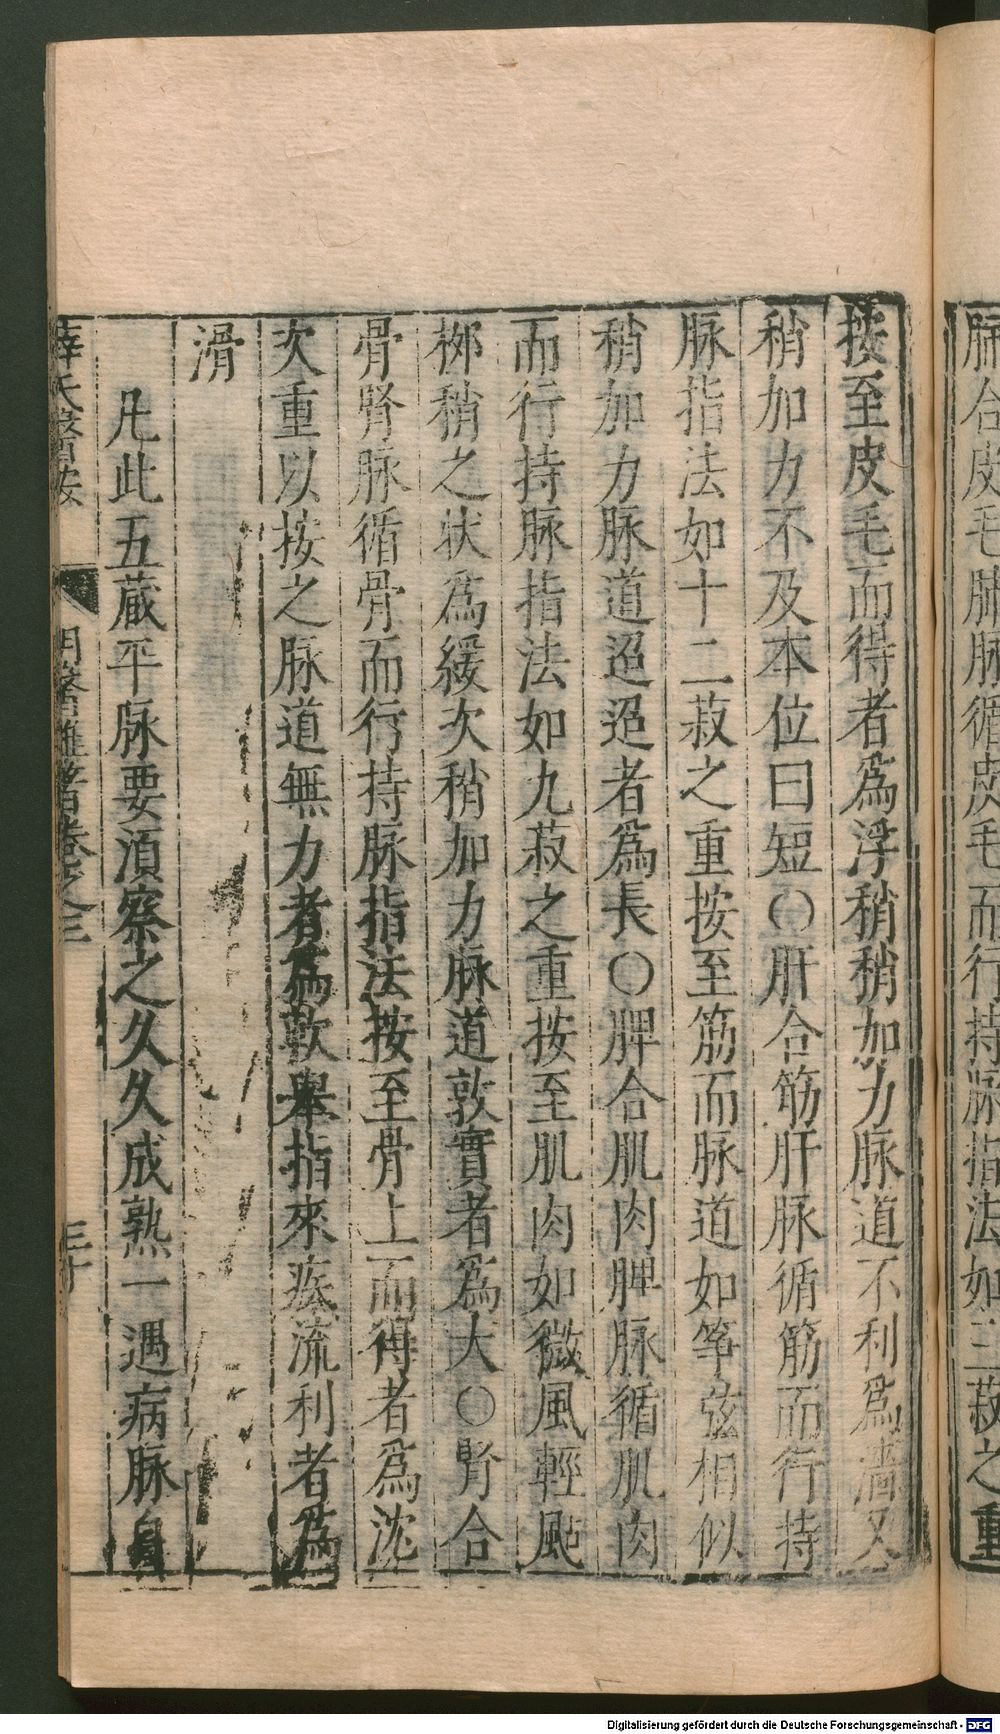 肺合皮毛肺脉循皮毛而行持脉指法如三菽之重
按至皮毛而得者爲浮稍稍加力脉道不利爲濇又
稍加力不及本位曰短〇肝合筋肝脉循筋而行持
脉指法如十二菽之重按至筋而脉道如筝弦相似
稍加力脉道迢迢者爲長〇脾合肌肉脾脉循肌肉
而行持脉指法如九菽之重按至肌肉如微風輕颭
栁稍之状爲緩次稍加力脉道敦實者爲大〇腎合
骨腎脉循骨而行持脉指法按至骨上而得者爲沈
次重以按之脉道無力者爲軟舉指來疾流利者爲
滑
凡此五蔵平脉要須察之久久成熟一遇病脉自
薛氏醫按
明醫雜著卷之三
三十
Digitalisierung gefördert durch die Deutsche Forschungsgemeinschaft - DFG